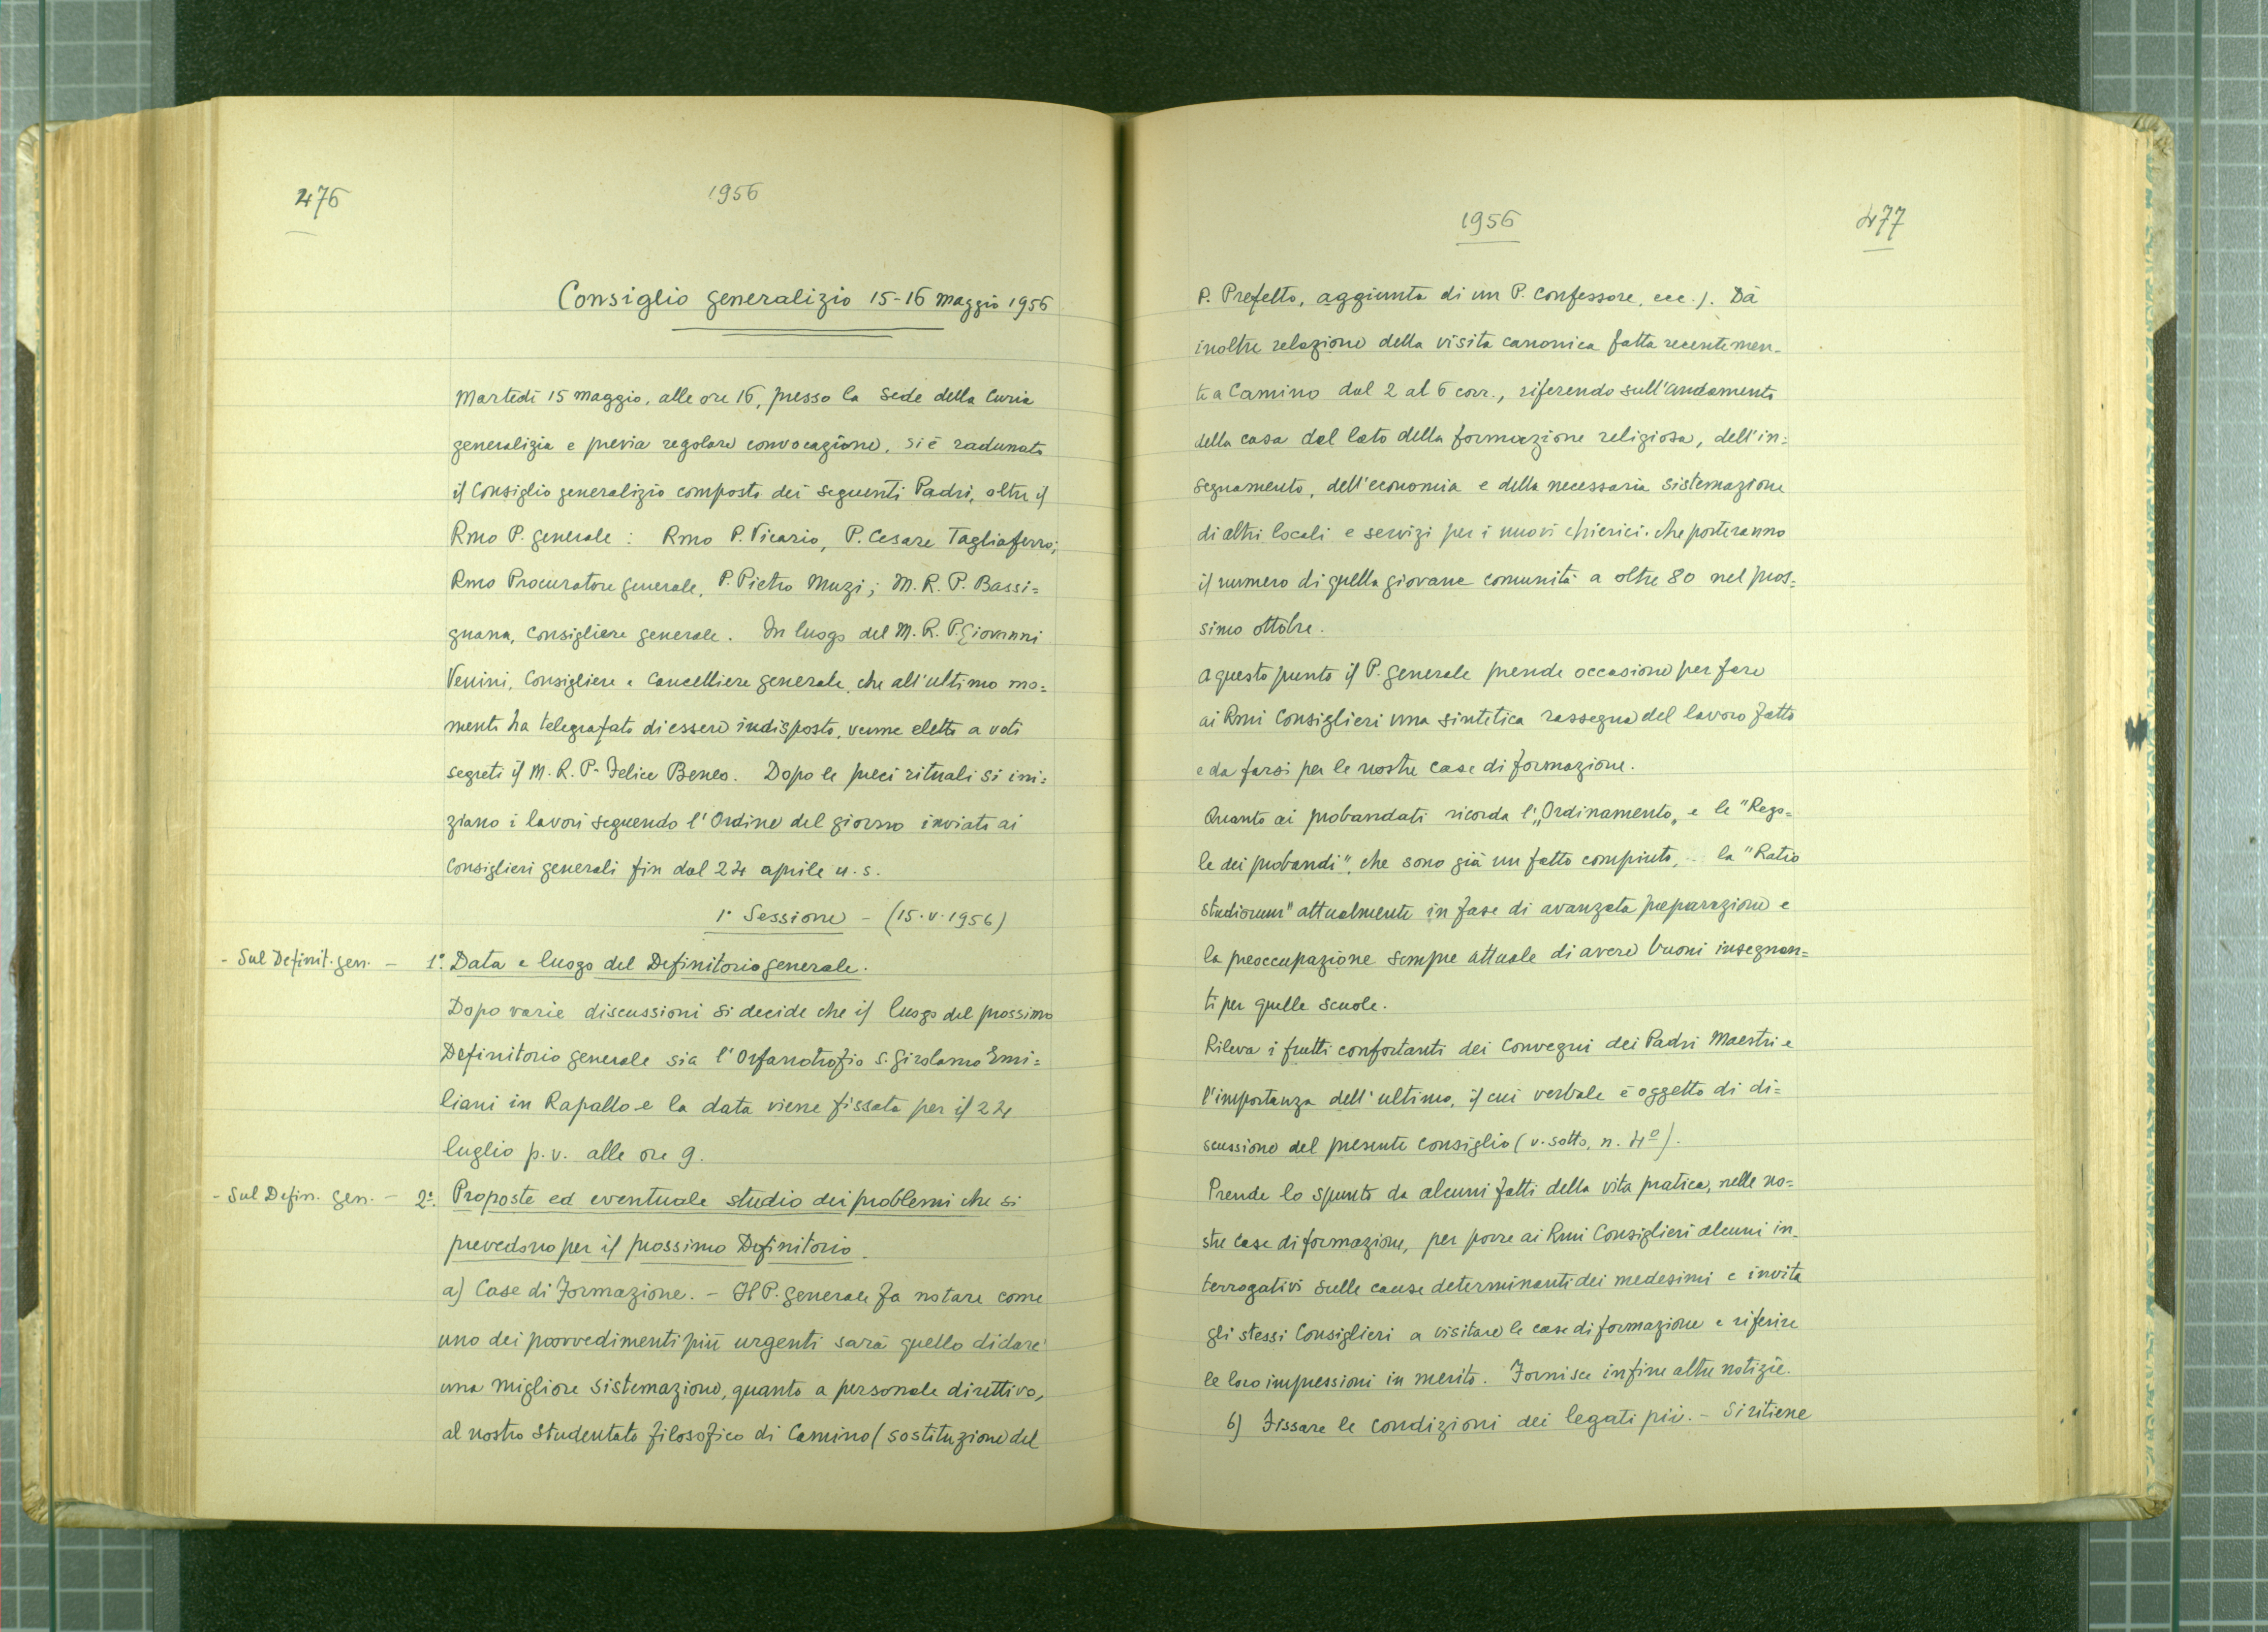 476
1956
Consiglio generalizio 15-16 maggio 1956
Martedì 15 maggio, alle ore 16, presso la Sede della Curia
generalizia e previa regolare convocazione, si è radunato
il Consiglio generalizio composto dei seguenti Padri, oltre il
Rmo P. generale : Rmo P. Vicario, P. Cesare Tagliaferro;
Rmo Procuratore generale, P. Pietro Muzi; M. R. P. Bassi=
gnana, Consigliere generale. In luogo del M. R. P. Giovanni
Venini, Consigliere e Cancelliere generale, che all'ultimo mo=
mento ha telegrafato di essere indisposto, venne eletto a voti
segreti il M. R. P. Felice Beneo. Dopo le preci rituali si ini=
ziano i lavori seguendo l'Ordine del giorno inviato ai
Consiglieri generali fin dal 24 aprile u. s.
1ª Sessione - (15.V.1956)
- Sul Definit. gen. - 1º. Data e luogo del Definitorio generale.
Dopo varie discussioni si decide che il luogo del prossimo
Definitorio generale sia l'Orfanotrofio S. Girolamo Emi=
liani in Rapallo e la data viene fissata per il 24
luglio p. v. alle ore 9.
- Sul Defin. gen. - 2º. Proposte ed eventuale studio dei problemi che si
prevedono per il prossimo Definitorio.
a) Case di Formazione. - Il P. generale fa notare come
uno dei provvedimenti più urgenti sarà quello di dare
una migliore sistemazione, quanto a personale direttivo,
al nostro Studentato filosofico di Camino (sostituzione del
1956
477
P. Prefetto, aggiunta di un P. Confessore, ecc.). Dà
inoltre relazione della visita canonica fatta recentemen-
te a Camino dal 2 al 6 corr., riferendo sull'andamento
della casa dal lato della formazione religiosa, dell'in=
segnamento, dell'economia e della necessaria sistemazione
di altri locali e servizi per i nuovi chierici che porteranno
il numero di quella giovane comunità a oltre 80 nel pros=
simo ottobre.
A questo punto il P. generale prende occasione per fare
ai Rmi Consiglieri una sintetica rassegna del lavoro fatto
e da farsi per le nostre case di formazione.
Quanto ai probandati ricorda l'„Ordinamento„ e le "Rego=
le dei probandi", che sono già un fatto compiuto, la "Ratio
studiorum" attualmente in fase di avanzata preparazione e
la preoccupazione sempre attuale di avere buoni insegnan=
ti per quelle scuole.
Rileva i frutti confortanti dei Convegni dei Padri Maestri e
l'importanza dell'ultimo, il cui verbale è oggetto di di=
scussione del presente Consiglio (v. sotto, n. 4º).
Prende lo spunto da alcuni fatti della vita pratica, nelle no=
stre Case di formazione, per porre ai Rmi Consiglieri alcuni in-
terrogativi sulle cause determinanti dei medesimi e invita
gli stessi Consiglieri a visitare le case di formazione e riferire
le loro impressioni in merito. Fornisce infine altre notizie.
b) Fissare le condizioni dei legati pii. - Si ritiene